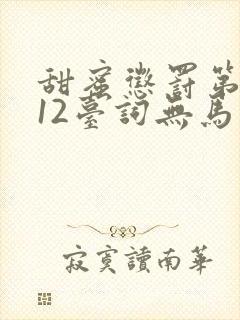 甜蜜懲罰第
12臺詞無馬
寂寞讀南華